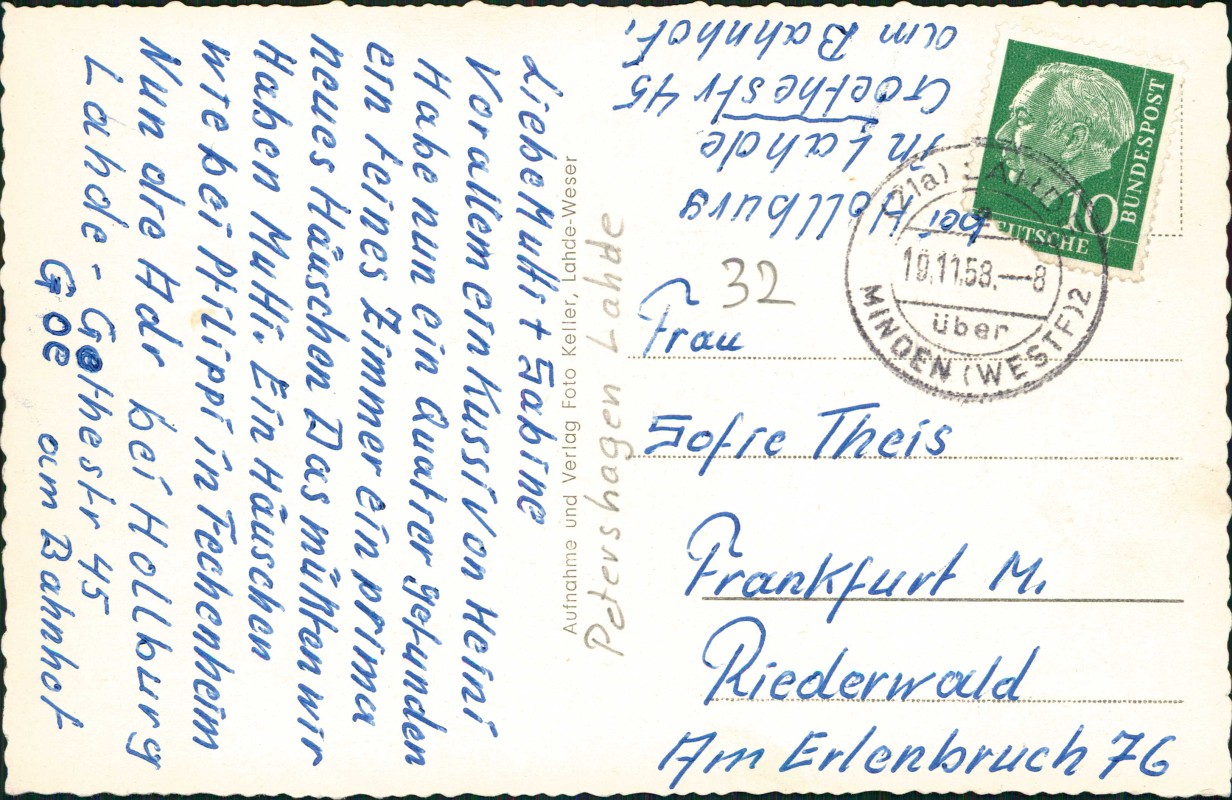 Liebe Mutti + Sabine
Vorallem ein Kussi von Heini
Habe nun ein Quatier gefunden
ein feines Zimmer ein prima
neues Häuschen Das müsten wir
Haben Mutti. Ein Häuschen
wie bei Philippi in Fechenheim
Nun die Adr bei Hollburg
Lahde - Goethestr 45
Goe am Bahnhof
Aufnahme und Verlag Foto Keller, Lahde-Weser
Petershagen Lahde
bei Hollburg
in Lahde
Goethestr 45
am Bahnhof.
32
DEUTSCHE
BUNDESPOST
10
(21a)
19.11.58.—8
über
MINDEN (WESTF) 2
Frau
Sofie Theis
Frankfurt M.
Riederwald
Am Erlenbruch 76